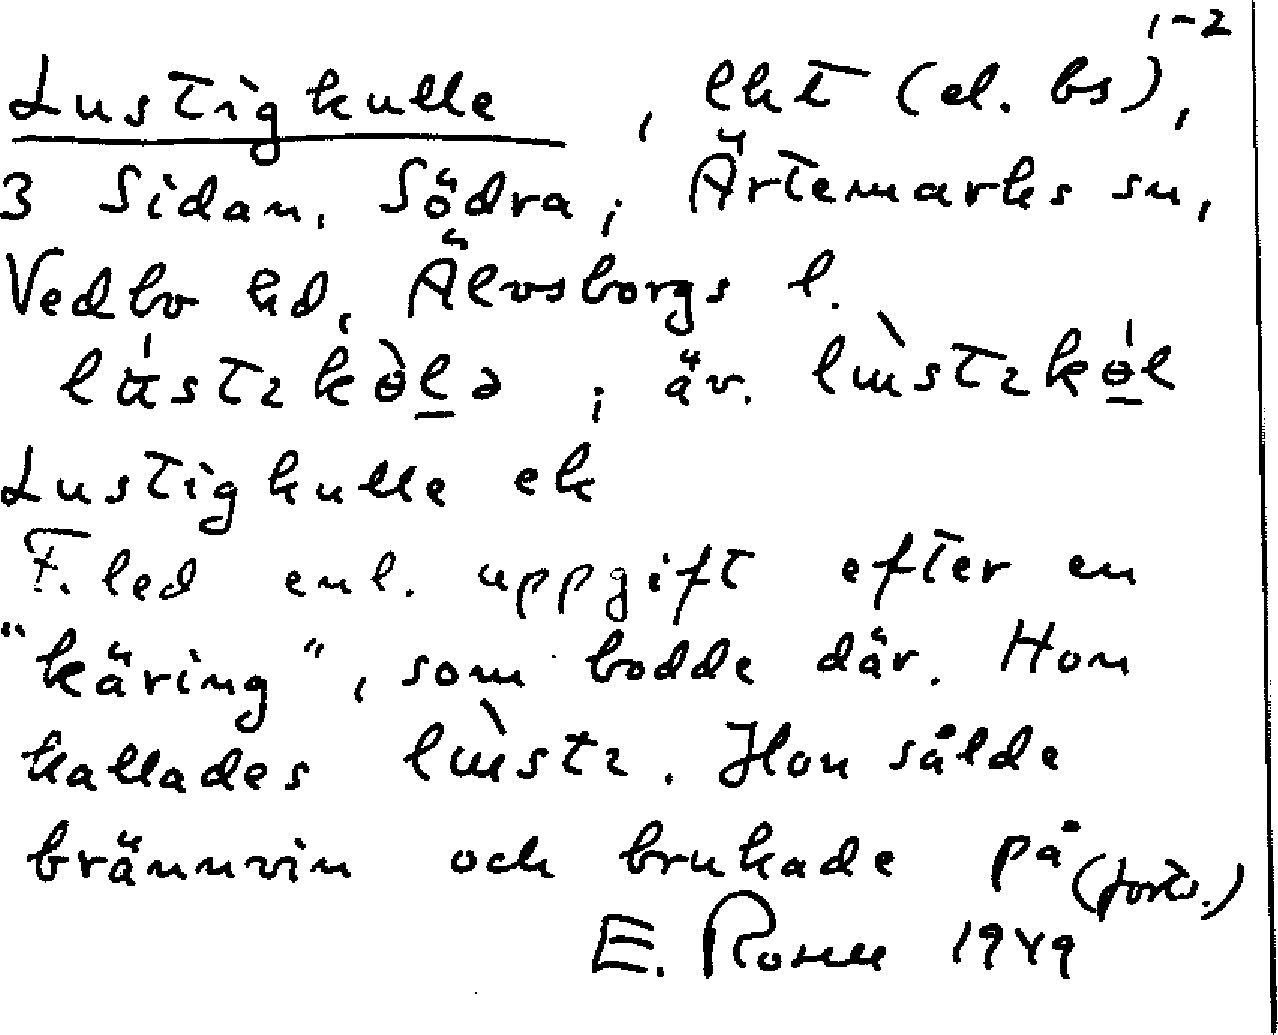 1-2
Lustigkulle, lht (el. bs),
3 Sidan, Södra, Ärtemarks sn,
Vedbo hd, Älvsborgs l.
äv.
Lustigkulle ek
F. led enl. uppgift efter en
"käring", som bodde där. Hon
kallades Hon sålde
brännvin och brukade på (forts.)
E. Rosell 1949